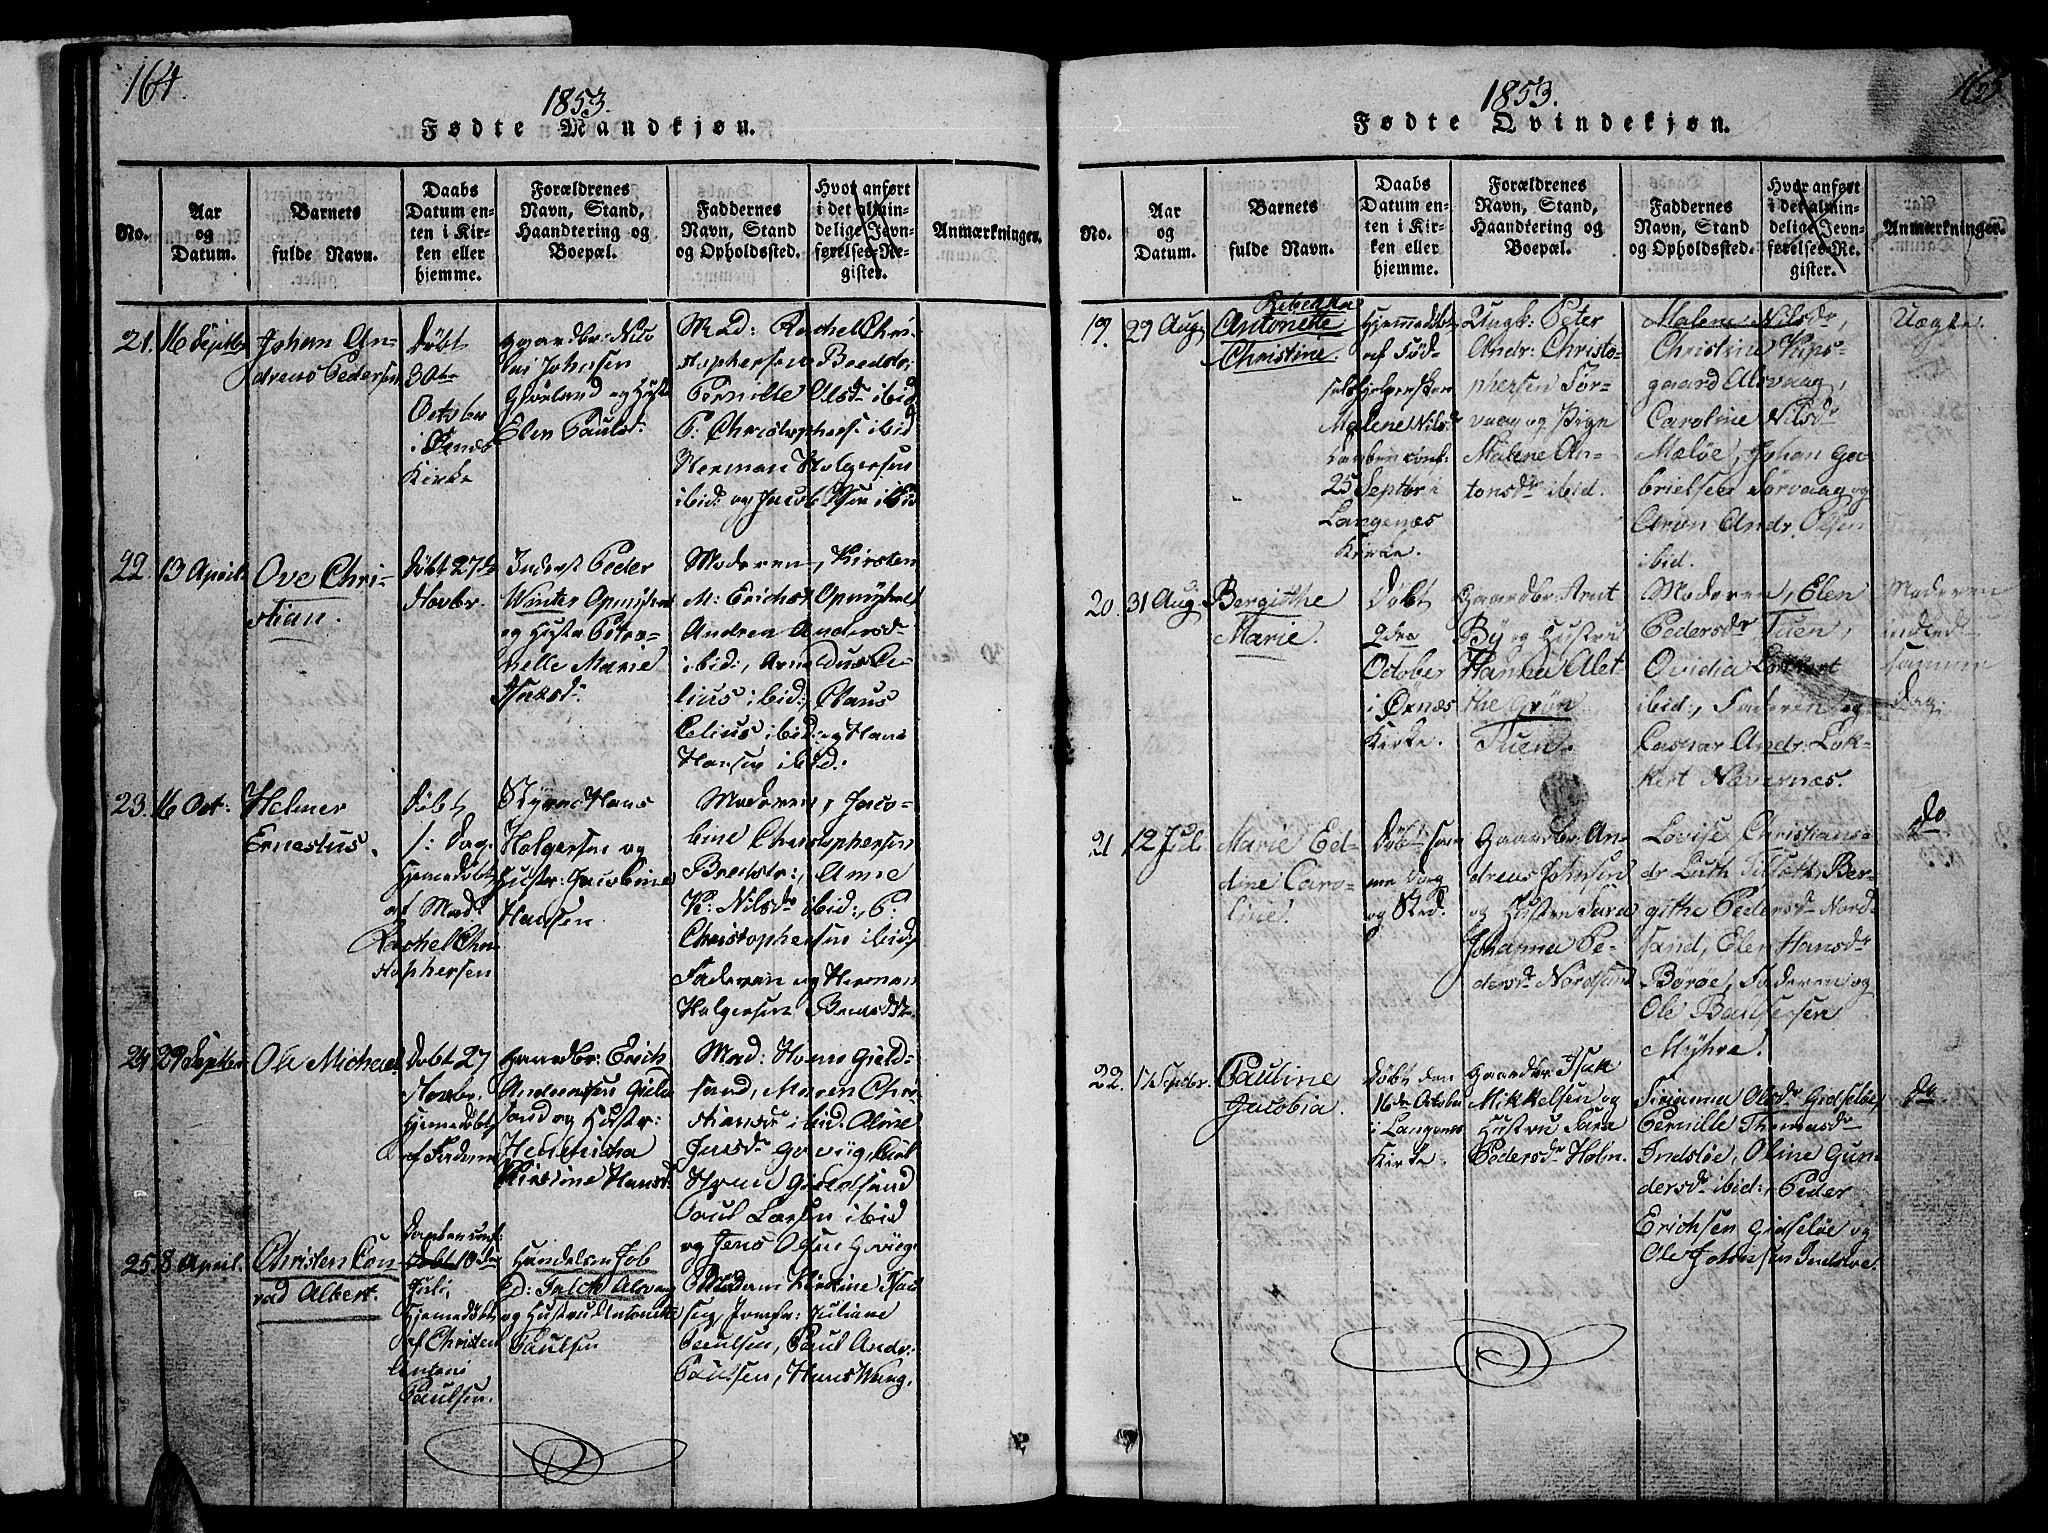 164.
1853.
Fødte Mandkjøn.
No.
Aar
og
Datum.
Barnets
fulde Navn.
Daabs
Datum en-
ten i Kir-
ken eller
hjemme.
Forældrenes
Navn, Stand,
Haandtering og
Boepæl.
Faddernes
Navn, Stand
og Opholdssted.
Hvor anført
i det almin-
delige Jevn-
førelses-Re-
gister.
Anmærkninger.
21.
16 Septbr
Johan An-
dreas Pedersen
Døbt
30te
Octobr
i Ørnæs
Kirke
Gaardbr: Nico
lai Johnsen
og Hustr
Elen Paulsd:
Mad: Rachel Chri-
stophersen Bredstr:
Pernille Olsdr ibid
P: Christophers: ibid
Herman Holgersen
ibid: og Jacob ibid
22.
13 April.
Ove Chri-
stian.
Døbt 27de
Novbr.
Inderst Peder
Winter Opmyhret
og Hustr Petro-
nelle Marie
Isaksd:
Moderen, Kirsten
M: Erichsd Opmyhret
Andrea Andersd
ibid:, Arnoldus Ce-
lius ibid:, Claus
Celius ibid: og Hans
Hansen ibid:
23.
16 Oct:
Helmer
Ernestus.
Døbt
s: Dag
Hjemedøbt
af Mad
Rachel Chri-
stophersen
Styrm: Hans
Holgersen og
Hustr: Jacobine
Hansen.
Moderen, Jaco-
bine Christophersen
Bredstr:, Anne
K: Nilsdr ibid:, P:
Christophersen ibid,
Faderen og Herman
Holgersen Bredstr.
24.
29 Septbr
Ole Michael
Døbt 27
Novbr.
Hjemedøbt
af Faderen
Gaardbr: Erich
Andersen Gield
sand og Hustr:
Hendricha
Kirstine Hansd:
Mad: Horn Gield-
sand, Maren Chri-
stiansdr ibid. Oline
Jensdr Govüg, Carl
Horn Gieldsand
Poul Larsen ibid
og Jens Olsen Govüg.
25.
8 April.
Christen Con-
rad Albert.
Daaben conf:
Døbt 10de
Juli,
Hjemedøbt
af Christen
Antoni
Paulsen.
Handelsm Job
D: Falch Alsvaag
og Hustru Antonette
Paulsen
Madam Kirstine Falch
Jomfr: Juliane
Paulsen, Paul Andr:
Paulsen, Hans Wang.
165.
1853.
Fødte Qvindekjøn.
No.
Aar
og
Datum.
Barnets
fulde Navn.
Daabs
Datum en-
ten i Kir-
ken eller
hjemme.
Forældrenes
Navn, Stand,
Haandtering og
Boepæl.
Faddernes
Navn, Stand
og Opholdssted.
Hvor anført
i det almin-
delige Jevn-
førelses-Re-
gister.
Anmærkninger.
19.
29 Aug
Rebekka
Antonette
Christine.
Hjemmedøbt
af Fød-
selshjelpersken
Malene Nilsdr
Daaben conf:
25 Septbr i
Langenæs
Kirke.
Ungk: Peter
Andr: Christo-
phersen Tør-
vaag og Pige
Malene An-
tonsdr ibid.
Malene Nilsdr,
Christine Kips-
gaard Alsvaag,
Caroline Nilsdr
Meløe, Johan Ga-
brielsen Tørvaag og
Aron Andr. Olsen
ibid.
Uægte.
20.
31 Aug
Bergitthe
Marie.
Døbt
2den
October
i Ørnæs
Kirke.
Gaardbr: Arnt
By og Hustru
Hanna Alet-
the Grøn
Tuen.
Moderen, Elen
Pedersdr Tuen,
Ovidia Lockert
ibid:, Faderen og
Caspar Andr. Lok-
kert Nævernes.
Moderen
indledt
samme
Dag.
21
12 Jul.
Marie Ed-
dine Caro-
line.
Døbt sam-
me Dag
og Sted.
Gaardbr: An-
dreas Johnsen
og Hustru Sara
Johanna Pe-
dersdr Nordsand
Lovise Christians-
dr Luth Tilsæth, Ber-
githe Pedersdr Nord
sand, Elen Hansdr
Børøe, Faderen og
Ole Baltsersen
Myhre.
do
22.
17 Septbr.
Pauline
Jacobia.
Døbt den
16de October
i Langenes
Kirke.
Gaardbr: Isak
Mikkelsen og
Hustru Sara
Pedersdr Holm.
Siriamia Olsdr Gidsløe,
Pernille Thomasdr
Indsløe, Oline Gun-
dersdr ibid:, Peder
Erichsen Gidsløe og
Ole Johnsen Indsløe.
do